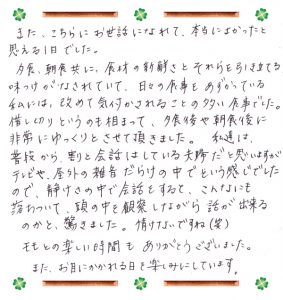 また、こちらにお世話になれて、本当によかったと
思える1日でした。
夕食、朝食共に、食材の新鮮さとそれらを引きたてる
味つけがなされていて、日々の食事をあずかっている
私には、改めて気付かされることの多い食事でした。
借し切りというのも相まって、夕食後や朝食後に
非常にゆっくりとさせて頂きました。私達は、
普段から、割と会話はしている夫婦だと思いますが
テレビや、屋外の雑音だらけの中でという感じでした
ので、静けさの中で会話をすると、こんなにも
落ちついて、頭の中を観察しながら話が出来る
のかと、驚きました。情けないですね(笑)
モモとの楽しい時間もありがとうございました。
また、お目にかかれる日を楽しみにしています。